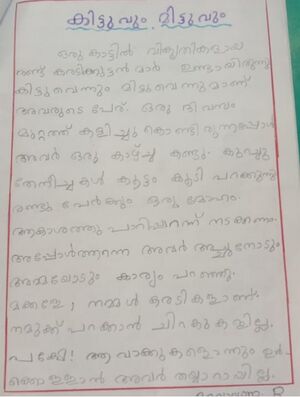 കിട്ടുവും മിട്ടുവും
ഒരു കാട്ടിൽ വികൃതികളായ
രണ്ട് കരടിക്കുട്ടൻമാർ ഉണ്ടായിരുന്നു
കിട്ടുവെന്നും മിട്ടുവെന്നുമാണ്
അവരുടെ പേര്. ഒരു ദിവസം
മുറ്റത്ത് കളിച്ചു കൊണ്ടിരുന്നപ്പോൾ
അവർ ഒരു കാഴ്ച്ച കണ്ടു. കുറച്ചു
തേനീച്ചകൾ കൂട്ടം കൂടി പറക്കുന്നു
രണ്ടു പേർക്കും ഒരു മോഹം.
ആകാശത്തു പാറിപ്പറന്ന് നടക്കണം.
അപ്പോൾത്തന്നെ അവർ അച്ഛനോടും
അമ്മയോടും കാര്യം പറഞ്ഞു.
മക്കളേ, നമ്മൾ കരടികളാണ്.
നമുക്ക് പറക്കാൻ ചിറകുകളില്ല.
പക്ഷേ! ആ വാക്കുകളൊന്നും ഉൾ-
ക്കൊള്ളാൻ അവർ തയ്യാറായില്ല.